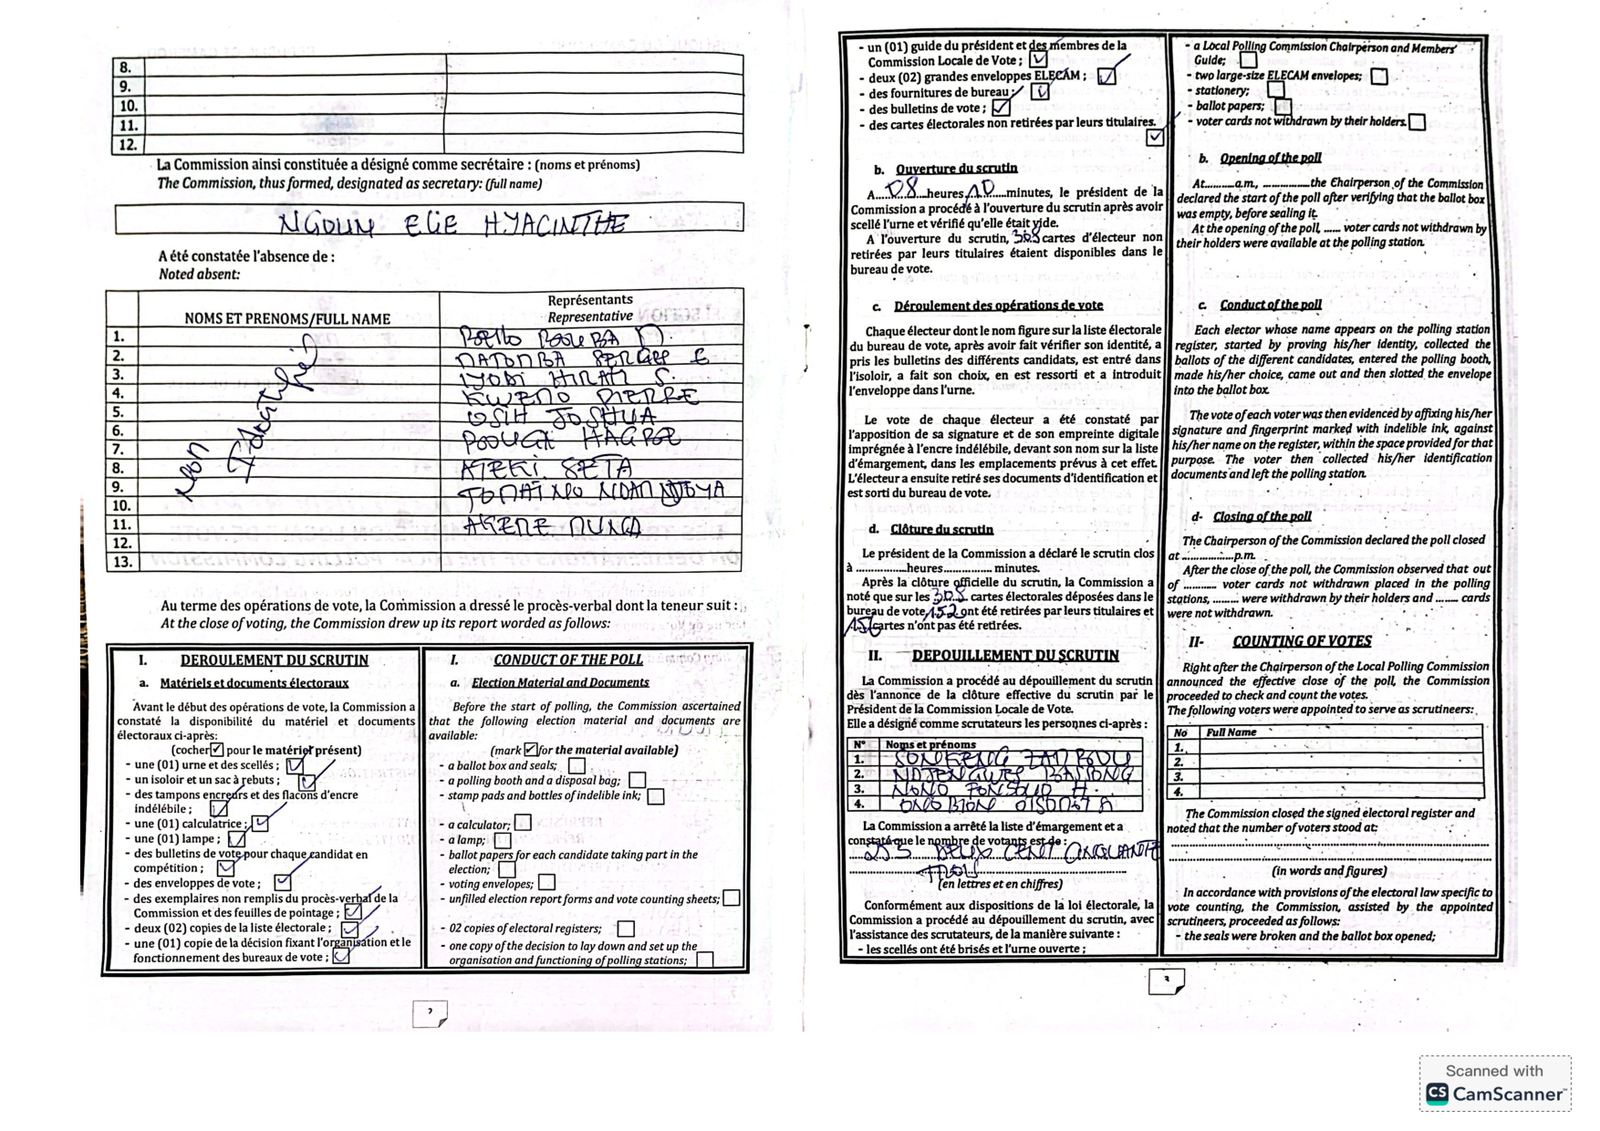 8.
9.
10.
11.
12.
La Commission ainsi constituée a désigné comme secrétaire : (noms et prénoms)
The Commission, thus formed, designated as secretary: (full name)
NGOUM ELIE HYACINTHE
A été constatée l'absence de :
Noted absent:
NOMS ET PRENOMS/FULL NAME
Représentants
Representative
1. BELLO BOUBA M.
2. MATOMBA SERGE E
3. IYODI HIRAM S.
4. KWEMO PIERRE
5. OSIH JOSHUA
6.
7.
8. ATEKI SETA
9. TOMAÏNO NDAM NJOYA
10.
11. AKERE MUNA
12.
13.
Non Identifié
Au terme des opérations de vote, la Commission a dressé le procès-verbal dont la teneur suit :
At the close of voting, the Commission drew up its report worded as follows:
I. DEROULEMENT DU SCRUTIN
a. Matériels et documents électoraux
Avant le début des opérations de vote, la Commission a
constaté la disponibilité du matériel et documents
électoraux ci-après:
(cocher pour le matériel présent)
- une (01) urne et des scellés ;
- un isoloir et un sac à rebuts ;
- des tampons encreurs et des flacons d'encre
indélébile ;
- une (01) calculatrice ;
- une (01) lampe ;
- des bulletins de vote pour chaque candidat en
compétition ;
- des enveloppes de vote ;
- des exemplaires non remplis du procès-verbal de la
Commission et des feuilles de pointage ;
- deux (02) copies de la liste électorale ;
- une (01) copie de la décision fixant l'organisation et le
fonctionnement des bureaux de vote ;
I. CONDUCT OF THE POLL
a. Election Material and Documents
Before the start of polling, the Commission ascertained
that the following election material and documents are
available:
(mark for the material available)
- a ballot box and seals;
- a polling booth and a disposal bag;
- stamp pads and bottles of indelible ink;
- a calculator;
- a lamp;
- ballot papers for each candidate taking part in the
election;
- voting envelopes;
- unfilled election report forms and vote counting sheets;
- 02 copies of electoral registers;
- one copy of the decision to lay down and set up the
organisation and functioning of polling stations;
2
- un (01) guide du président et des membres de la
Commission Locale de Vote ;
- deux (02) grandes enveloppes ELECAM ;
- des fournitures de bureau ;
- des bulletins de vote ;
- des cartes électorales non retirées par leurs titulaires.
b. Ouverture du scrutin
A....08...heures..10....minutes, le président de la
Commission a procédé à l'ouverture du scrutin après avoir
scellé l'urne et vérifié qu'elle était vide.
A l'ouverture du scrutin, 308 cartes d'électeur non
retirées par leurs titulaires étaient disponibles dans le
bureau de vote.
c. Déroulement des opérations de vote
Chaque électeur dont le nom figure sur la liste électorale
du bureau de vote, après avoir fait vérifier son identité, a
pris les bulletins des différents candidats, est entré dans
l'isoloir, a fait son choix, en est ressorti et a introduit
l'enveloppe dans l'urne.
Le vote de chaque électeur a été constaté par
l'apposition de sa signature et de son empreinte digitale
imprégnée à l'encre indélébile, devant son nom sur la liste
d'émargement, dans les emplacements prévus à cet effet.
L'électeur a ensuite retiré ses documents d'identification et
est sorti du bureau de vote.
d. Clôture du scrutin
Le président de la Commission a déclaré le scrutin clos
à ...............heures............... minutes.
Après la clôture officielle du scrutin, la Commission a
noté que sur les 308 cartes électorales déposées dans le
bureau de vote, 152 ont été retirées par leurs titulaires et
156 cartes n'ont pas été retirées.
II. DEPOUILLEMENT DU SCRUTIN
La Commission a procédé au dépouillement du scrutin
dès l'annonce de la clôture effective du scrutin par le
Président de la Commission Locale de Vote.
Elle a désigné comme scrutateurs les personnes ci-après :
N° Noms et prénoms
1.
2.
3.
4.
La Commission a arrêté la liste d'émargement et a
constaté que le nombre de votants est de :
253 DEUX CENT CINQUANTE
TROIS
(en lettres et en chiffres)
Conformément aux dispositions de la loi électorale, la
Commission a procédé au dépouillement du scrutin, avec
l'assistance des scrutateurs, de la manière suivante :
- les scellés ont été brisés et l'urne ouverte ;
- a Local Polling Commission Chairperson and Members'
Guide;
- two large-size ELECAM envelopes;
- stationery;
- ballot papers;
- voter cards not withdrawn by their holders.
b. Opening of the poll
At..........a.m., ...............the Chairperson of the Commission
declared the start of the poll after verifying that the ballot box
was empty, before sealing it.
At the opening of the poll, ...... voter cards not withdrawn by
their holders were available at the polling station.
c. Conduct of the poll
Each elector whose name appears on the polling station
register, started by proving his/her identity, collected the
ballots of the different candidates, entered the polling booth,
made his/her choice, came out and then slotted the envelope
into the ballot box.
The vote of each voter was then evidenced by affixing his/her
signature and fingerprint marked with indelible ink, against
his/her name on the register, within the space provided for that
purpose. The voter then collected his/her identification
documents and left the polling station.
d- Closing of the poll
The Chairperson of the Commission declared the poll closed
at ..................p.m.
After the close of the poll, the Commission observed that out
of .......... voter cards not withdrawn placed in the polling
stations, ........ were withdrawn by their holders and ........ cards
were not withdrawn.
II- COUNTING OF VOTES
Right after the Chairperson of the Local Polling Commission
announced the effective close of the poll, the Commission
proceeded to check and count the votes.
The following voters were appointed to serve as scrutineers:
No Full Name
1.
2.
3.
4.
The Commission closed the signed electoral register and
noted that the number of voters stood at:
(in words and figures)
In accordance with provisions of the electoral law specific to
vote counting, the Commission, assisted by the appointed
scrutineers, proceeded as follows:
- the seals were broken and the ballot box opened;
3
Scanned with
CS CamScanner